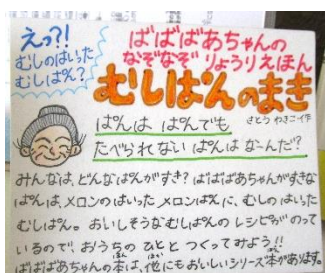 えっ?!
むしのはいった
むしぱん?
ばばばあちゃんの
なぞなぞ りょうりえほん
むしぱんのまき
さとう わきこ・作
ぱんは ぱんでも
たべられない ぱんは なーんだ?
みんなは、どんなぱんがすき? ばばばあちゃんがすきな
ぱんは、メロンのはいった メロンぱんに、むしの はいった
むしぱん。おいしそうなむしぱんの レシピがのって
いるので、おうちの ひとと つくってみよう!!
ばばばあちゃんの本は、他にもおいしいシリーズ本があります。